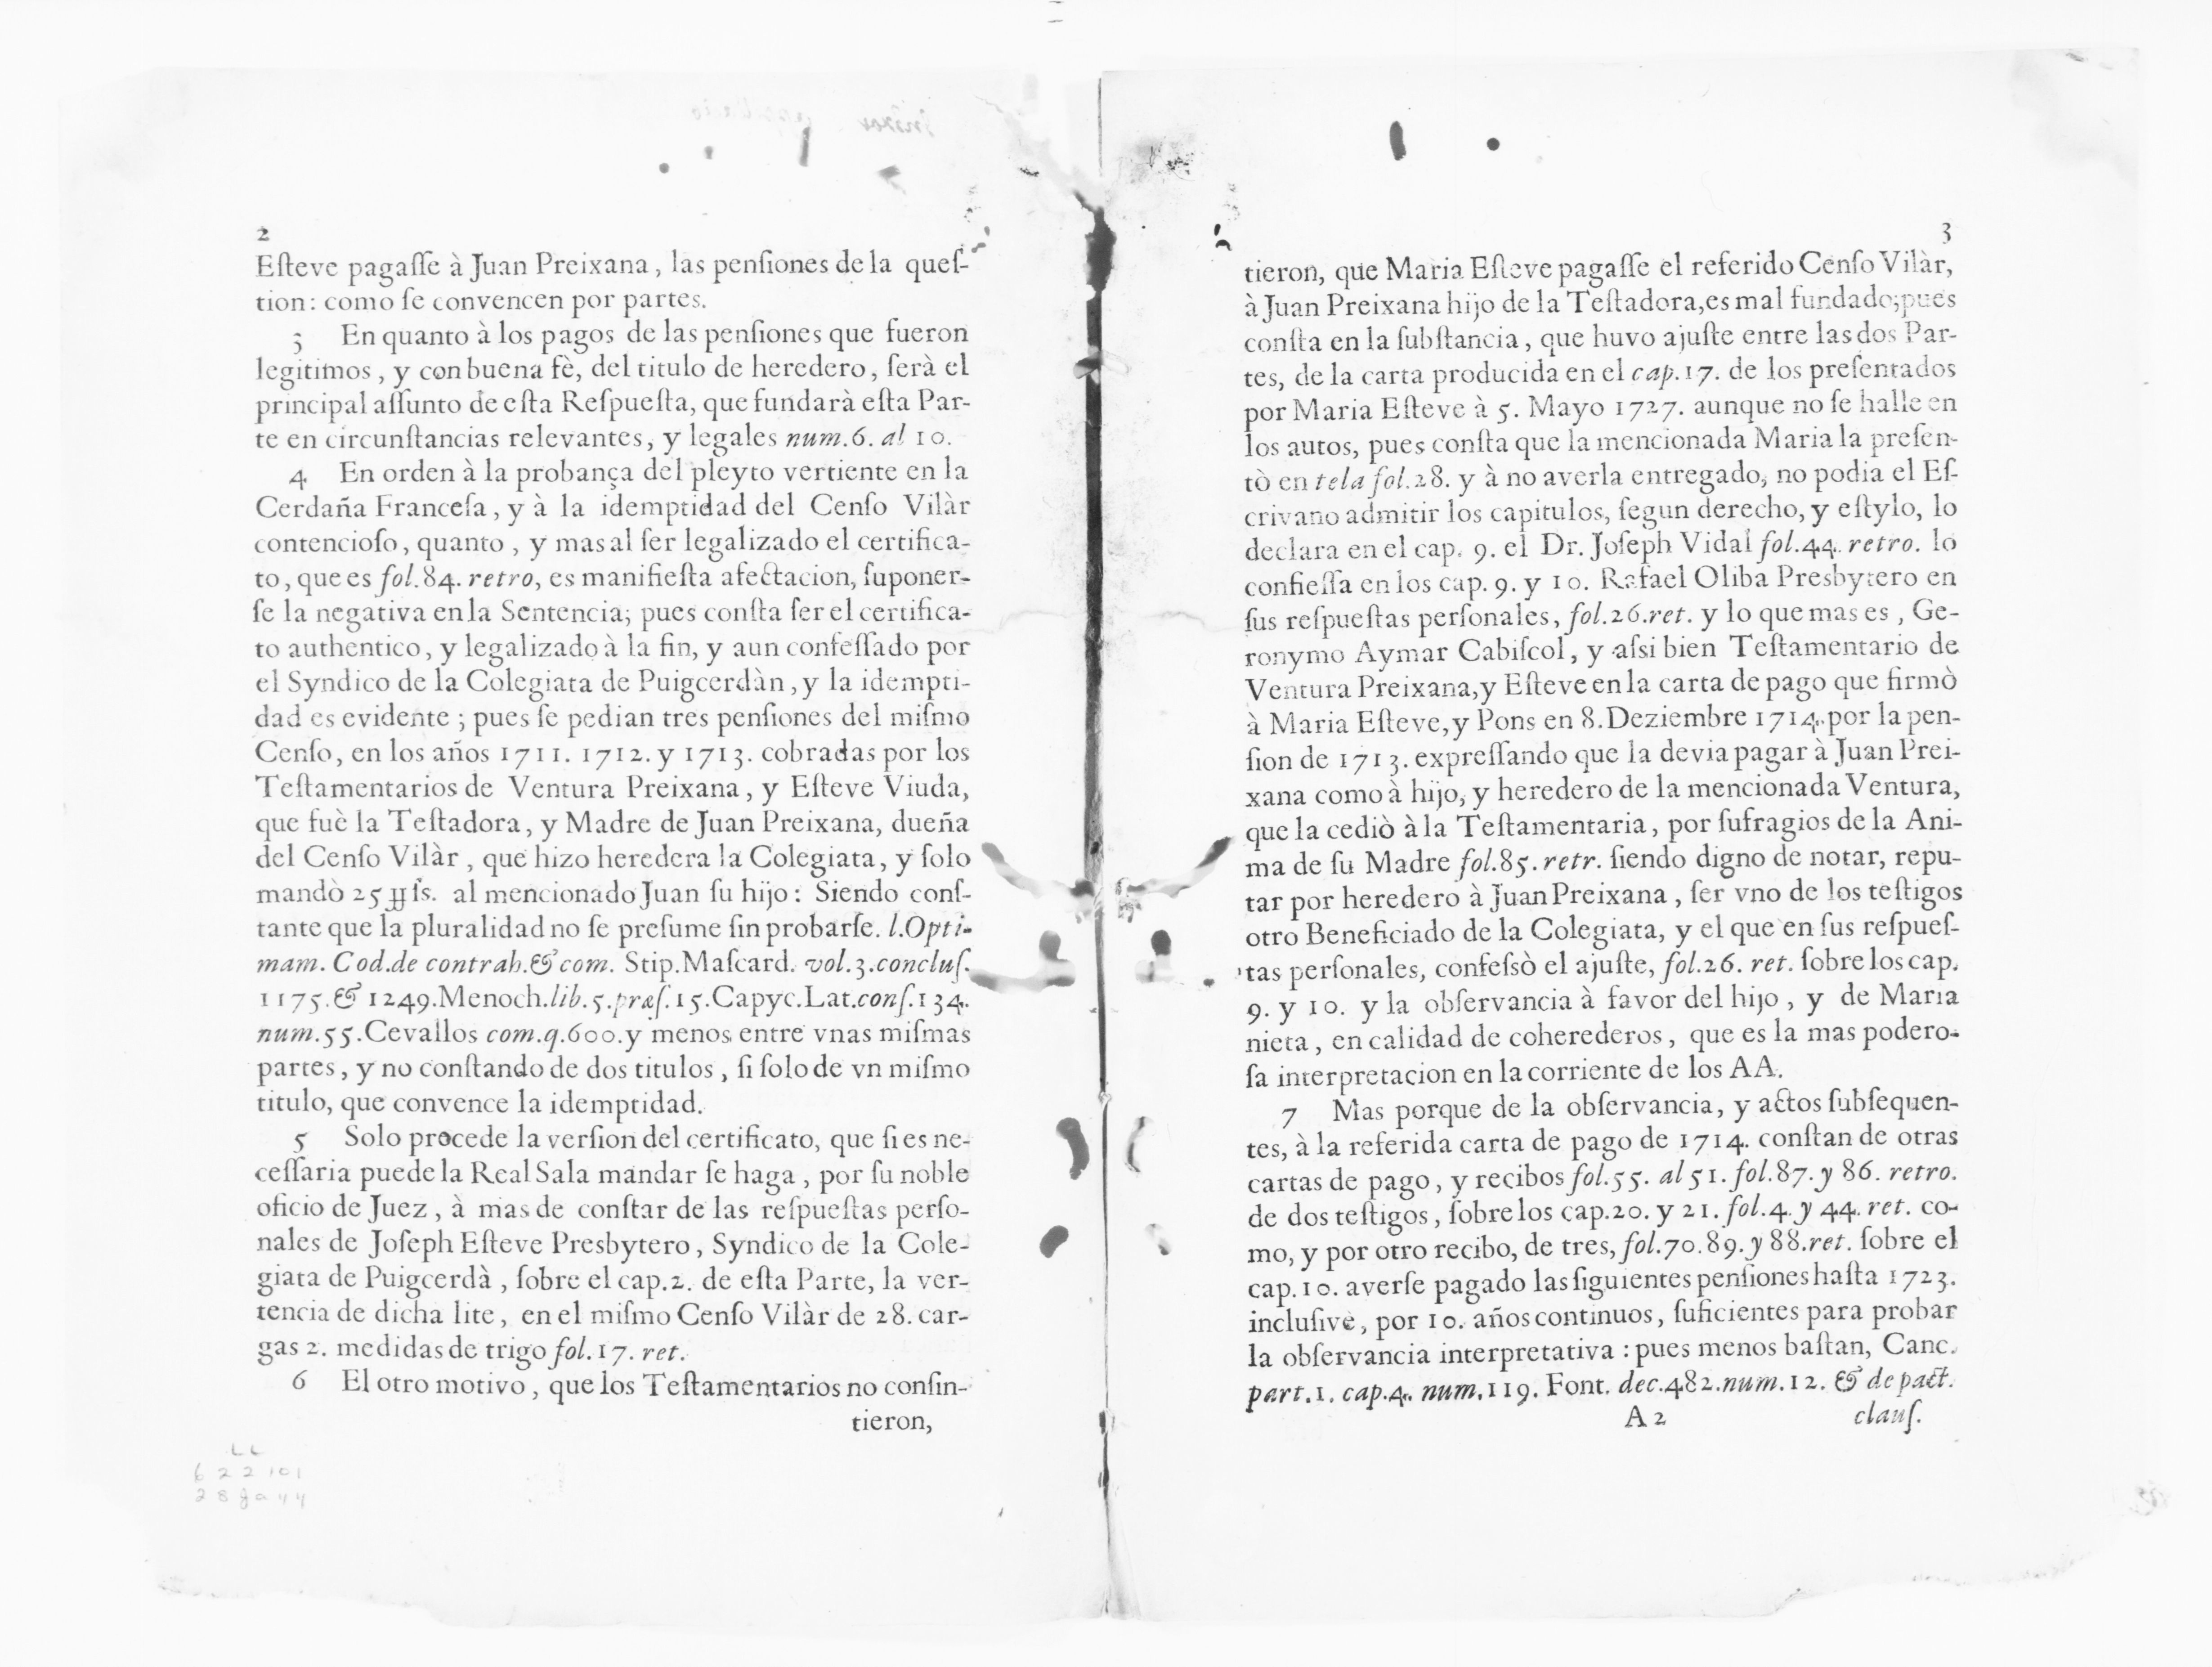 2
Eſteve pagaſſe à Juan Preixana, las penſiones de la queſ-
tion: como ſe convencen por partes.
3 En quanto à los pagos de las penſiones que fueron
legitimos, y con buena fè, del titulo de heredero, ſerà el
principal aſſunto de eſta Reſpueſta, que fundarà eſta Par-
te en circunſtancias relevantes, y legales num.6. al 10.
4 En orden à la probança del pleyto vertiente en la
Cerdaña Franceſa, y à la idemptidad del Cenſo Vilàr
contencioſo, quanto, y mas al ſer legalizado el certifica-
to, que es fol.84. retro, es manifieſta afectacion, ſuponer-
ſe la negativa en la Sentencia; pues conſta ſer el certifica-
to authentico, y legalizado à la fin, y aun confeſſado por
el Syndico de la Colegiata de Puigcerdàn, y la idempti-
dad es evidente; pues ſe pedian tres penſiones del miſmo
Cenſo, en los años 1711. 1712. y 1713. cobradas por los
Teſtamentarios de Ventura Preixana, y Eſteve Viuda,
que fuè la Teſtadora, y Madre de Juan Preixana, dueña
del Cenſo Vilàr, que hizo heredera la Colegiata, y ſolo
mandò 25 ſs. al mencionado Juan ſu hijo: Siendo conſ-
tante que la pluralidad no ſe preſume ſin probarſe. l.Opti-
mam. Cod.de contrah.& com. Stip.Maſcard. vol.3.concluſ.
1175.& 1249.Menoch.lib.5.præſ.15.Capyc.Lat.conſ.134.
num.55.Cevallos com.q.600.y menos entre vnas miſmas
partes, y no conſtando de dos titulos, ſi ſolo de vn miſmo
titulo, que convence la idemptidad.
5 Solo procede la verſion del certificato, que ſi es ne-
ceſſaria puede la Real Sala mandar ſe haga, por ſu noble
oficio de Juez, à mas de conſtar de las reſpueſtas perſo-
nales de Joſeph Eſteve Presbytero, Syndico de la Cole-
giata de Puigcerdà, ſobre el cap.2. de eſta Parte, la ver-
tencia de dicha lite, en el miſmo Cenſo Vilàr de 28. car-
gas 2. medidas de trigo fol.17. ret.
6 El otro motivo, que los Teſtamentarios no conſin-
tieron,
LL
622101
28Ja44
3
tieron, que Maria Eſteve pagaſſe el referido Cenſo Vilàr,
à Juan Preixana hijo de la Teſtadora,es mal fundado;pues
conſta en la ſubſtancia, que huvo ajuſte entre las dos Par-
tes, de la carta producida en el cap.17. de los preſentados
por Maria Eſteve à 5. Mayo 1727. aunque no ſe halle en
los autos, pues conſta que la mencionada Maria la preſen-
tò en tela fol.28. y à no averla entregado, no podia el Eſ-
crivano admitir los capitulos, ſegun derecho, y eſtylo, lo
declara en el cap. 9. el Dr. Joſeph Vidal fol.44. retro. lo
confieſſa en los cap. 9. y 10. Rafael Oliba Presbytero en
ſus reſpueſtas perſonales, fol.26.ret. y lo que mas es, Ge-
ronymo Aymar Cabiſcol, y aſsi bien Teſtamentario de
Ventura Preixana,y Eſteve en la carta de pago que firmò
à Maria Eſteve,y Pons en 8.Deziembre 1714.por la pen-
ſion de 1713. expreſſando que la devia pagar à Juan Prei-
xana como à hijo, y heredero de la mencionada Ventura,
que la cediò à la Teſtamentaria, por ſufragios de la Ani-
ma de ſu Madre fol.85. retr. ſiendo digno de notar, repu-
tar por heredero à Juan Preixana, ſer vno de los teſtigos
otro Beneficiado de la Colegiata, y el que en ſus reſpueſ-
tas perſonales, confeſsò el ajuſte, fol.26. ret. ſobre los cap.
9. y 10. y la obſervancia à favor del hijo, y de Maria
nieta, en calidad de coherederos, que es la mas podero-
ſa interpretacion en la corriente de los AA.
7 Mas porque de la obſervancia, y actos ſubſequen-
tes, à la referida carta de pago de 1714. conſtan de otras
cartas de pago, y recibos fol.55. al 51. fol.87. y 86. retro.
de dos teſtigos, ſobre los cap.20. y 21. fol.4. y 44. ret. co-
mo, y por otro recibo, de tres, fol.70.89. y 88.ret. ſobre el
cap.10. averſe pagado las ſiguientes penſiones haſta 1723.
incluſivè, por 10. años continuos, ſuficientes para probar
la obſervancia interpretativa: pues menos baſtan, Canc.
part.1. cap.4. num.119. Font. dec.482.num.12. & de pact.
A 2 clauſ.